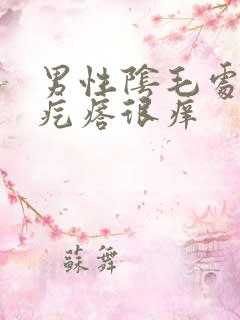 男性陰毛處
疙瘩很痒
蘇舞